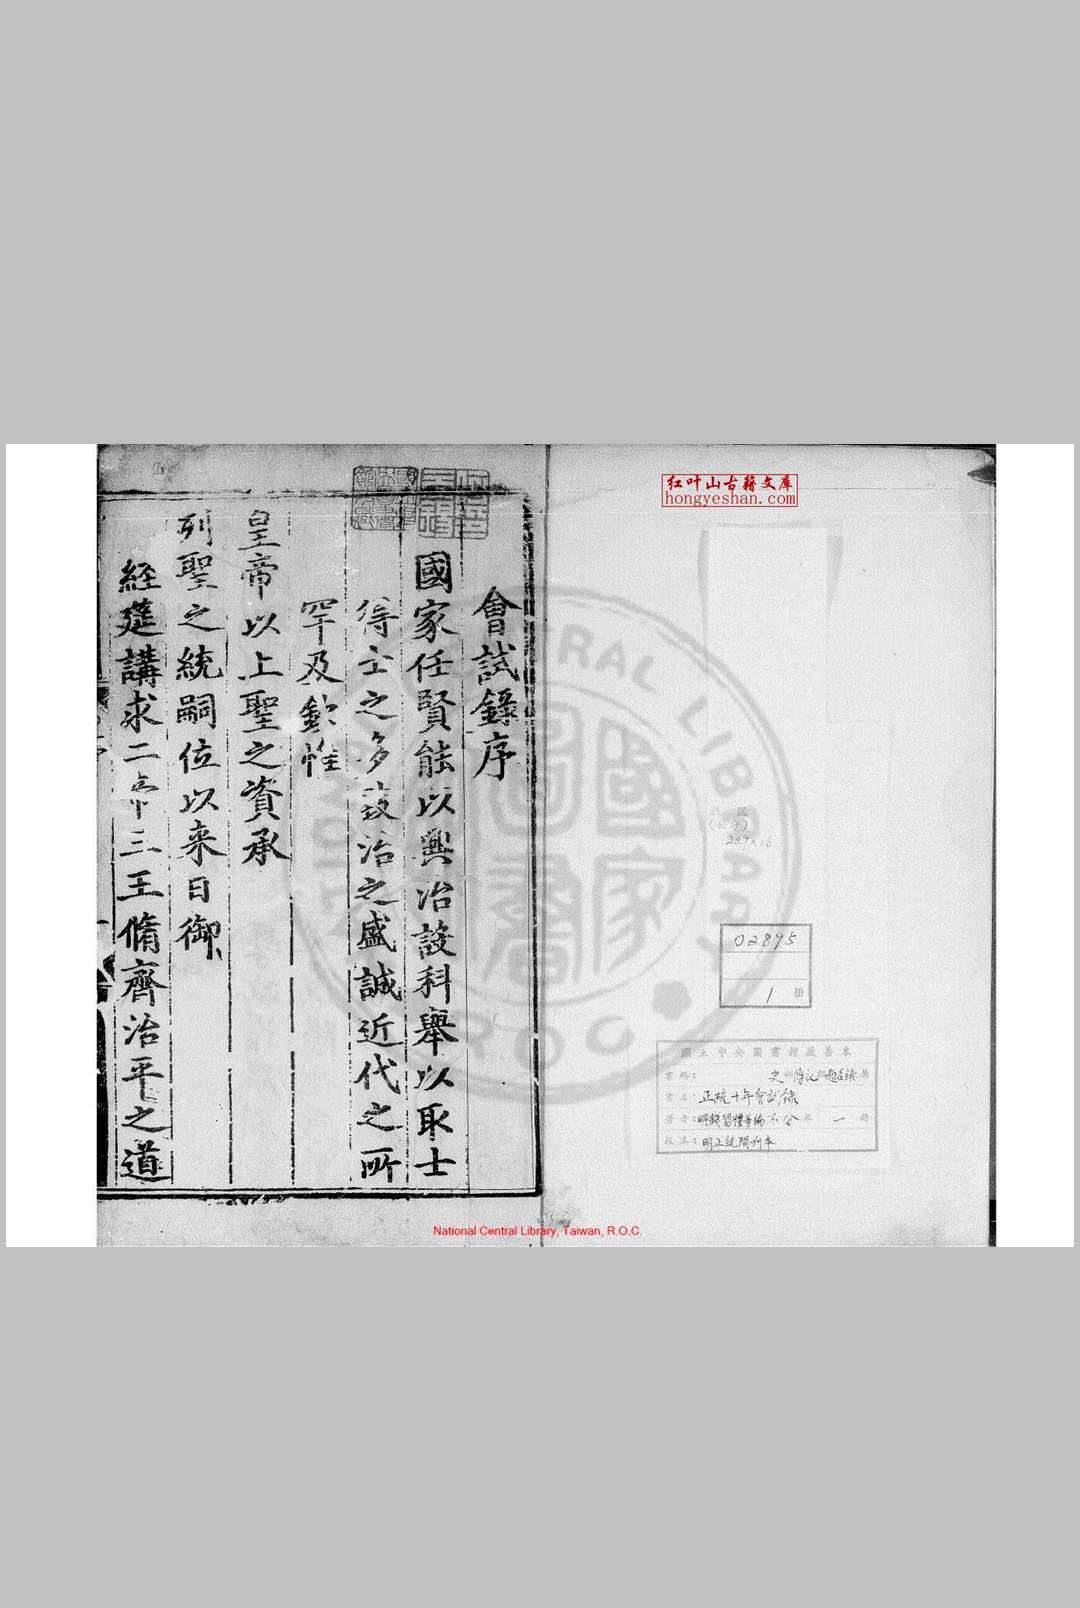 红叶山古籍文库
hongyeshan.com
02895
1 冊
國立中央圖書館藏善本
書名：正統十年會試錄
著者：明錢習禮等編不分卷 一 冊
版本：明正統間刊本
會試錄序
國家任賢能以興治設科舉以取士
得士之多致治之盛誠近代之所
罕及欽惟
皇帝以上聖之資承
列聖之統嗣位以來日御
經筵講求二帝三王脩齊治平之道
NATIONAL CENTRAL LIBRARY
R.O.C.
國家圖書
National Central Library, Taiwan, R.O.C.